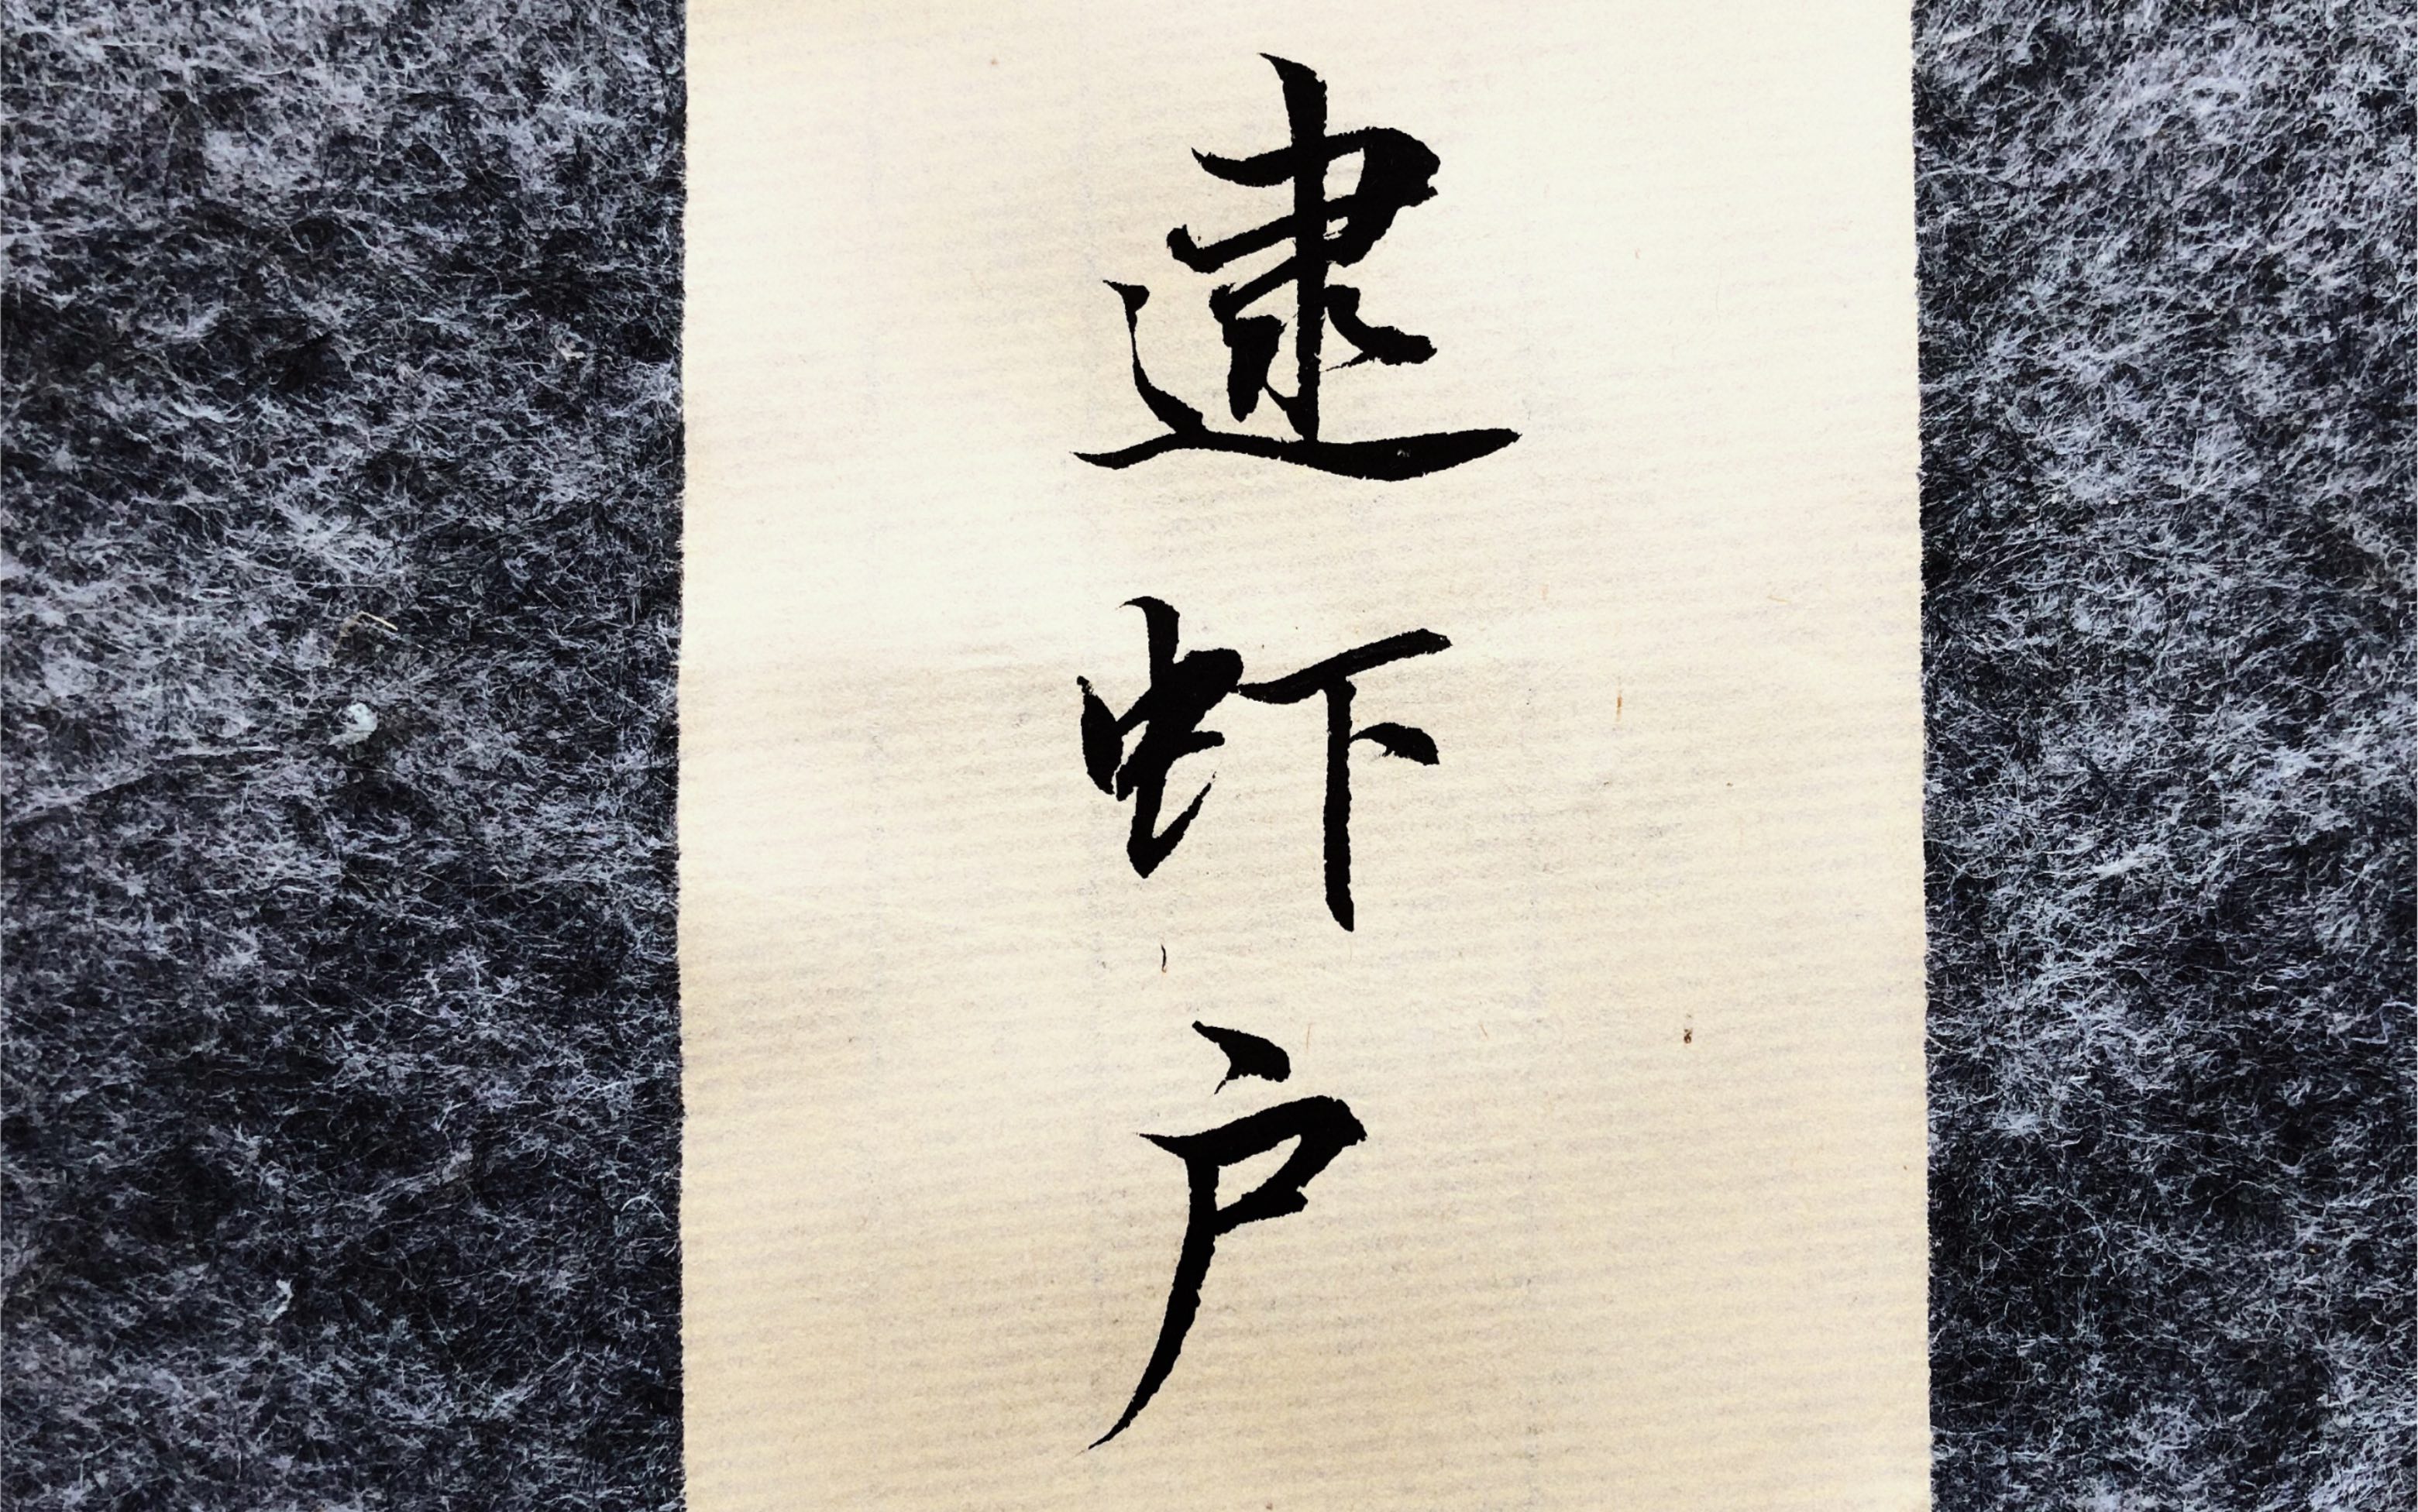 逮虾户